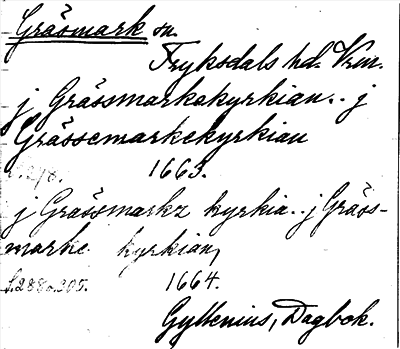 Gräsmark sn.
Fryksdals hd. Vrm.
j Grässmarkakyrkian.. j
Grässemarkekyrkian
s. 278. 1663.
j Gräsmarkz kyrkia.. j Gräss-
marke kyrkian,
s. 288 o. 305. 1664.
Gyllenius, Dagbok.